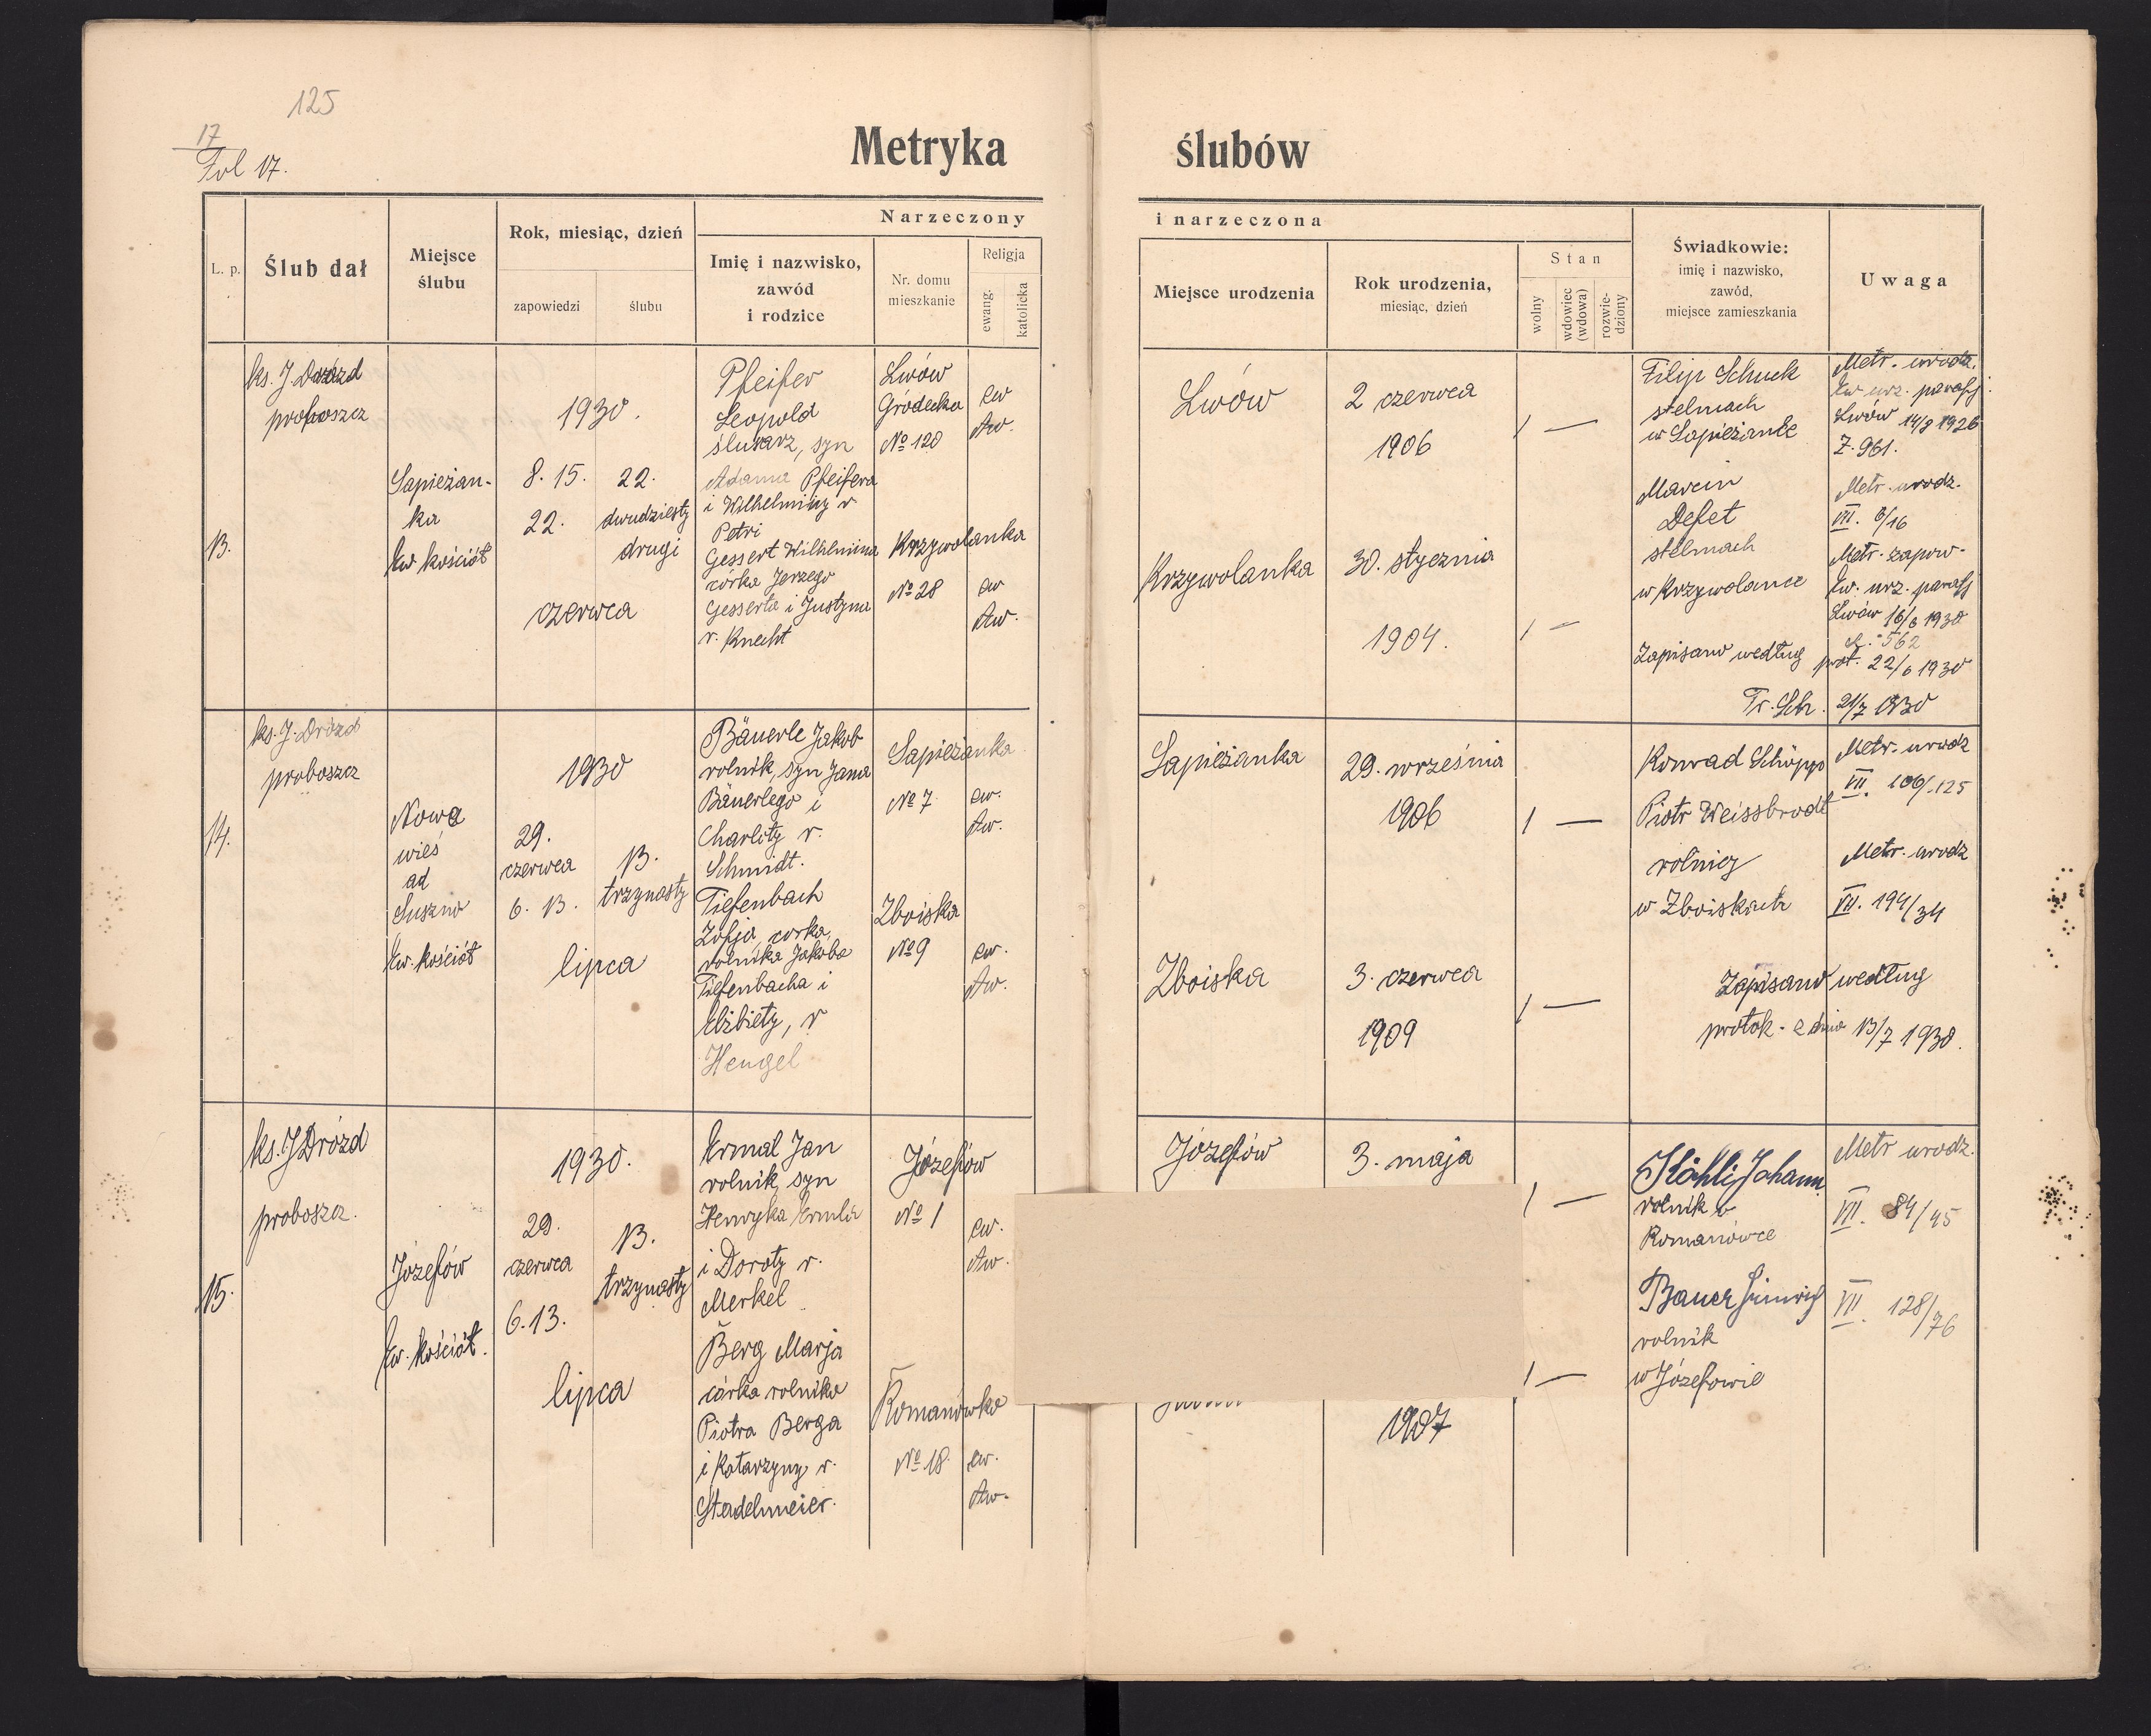 125
17
Fol 17.
Metryka ślubów
Narzeczony i narzeczona
L. p.
Ślub dał
Miejsce
ślubu
Rok, miesiąc, dzień
zapowiedzi
ślubu
Imię i nazwisko,
zawód
i rodzice
Nr. domu
mieszkanie
Religja
ewang.
katolicka
Miejsce urodzenia
Rok urodzenia,
miesiąc, dzień
Stan
wolny
wdowiec
(wdowa)
rozwie-
dziony
Świadkowie:
imię i nazwisko,
zawód,
miejsce zamieszkania
Uwaga
13.
ks. J. Drozd
proboszcz
Sapieżan-
ka
Ew kościół
1930.
8. 15. 22.
22. dwudziesty
drugi
czerwca
Pfeifer
Leopold
ślusarz, syn
Adama Pfeifera
i Wilhelminy r.
Petri
Gessert Wilhelmina
córka Jerzego
Gesserta i Justyna
r. Knecht
Lwów
Gródecka
No 120
ew
Aw.
Krzywolanka
No 28
ew
Aw.
Lwów
2 czerwca
1906
1 —
Krzywolanka
30. stycznia
1904.
1 —
Filip Schuck
stelmach
w Sapieżance
Marcin
Defet
stelmach
w Krzywolance
Zapisano według prot. 22/6 1930
Fr. Sch. 21/7 1930
Metr. urodz.
Ew urz. parafj.
Lwów 14/8 1926
Z. 961.
Metr. urodz.
VII. 6/16
Metr. zapow.
Ew. urz. parafj
Lwów 16/6 1930
L. 562
14.
ks. J. Drozd
proboszcz
Nowa
wieś
ad
Suszno
Ew. kościół
1930
29.
czerwca
6. 13.
13.
trzynasty
lipca
Bäuerle Jakob
rolnik, syn Jana
Bäuerlego i
Charloty r.
Schmidt.
Tiefenbach
Zofja, córka
rolnika Jakoba
Tiefenbacha i
Elżbiety, r
Hengel
Sapieżanka
No 7
ew.
Aw.
Zboiska
No 9
ew.
Aw.
Sapieżanka
29. września
1906
1 —
Zboiska
3. czerwca
1909
1 —
Konrad Schöpp
Piotr Weissbrodt
rolnicy
w Zboiskach
Metr. urodz
VII. 106/125
Metr. urodz
VII. 194/34
Zapisano według
protok. z dnia 13/7 1930.
15.
ks. J Drozd
proboszcz.
Józefów
Ew. kościół.
1930.
29.
czerwca
6. 13.
13.
trzynasty
lipca
Ermal Jan
rolnik, syn
Henryka Ermla
i Doroty r.
Merkel
Berg Marja
córka rolnika
Piotra Berga
i Katarzyny r.
Stadelmeier.
Józefów
No 1
ew.
Aw.
Romanówka
No 18.
ew.
Aw.
Józefów
3. maja
1 —
1907
1 —
Johann
rolnik w
Romanówce
Bauer Heinrich
rolnik
w Józefowie
Metr urodz.
VII. 84/45
VII 128/76